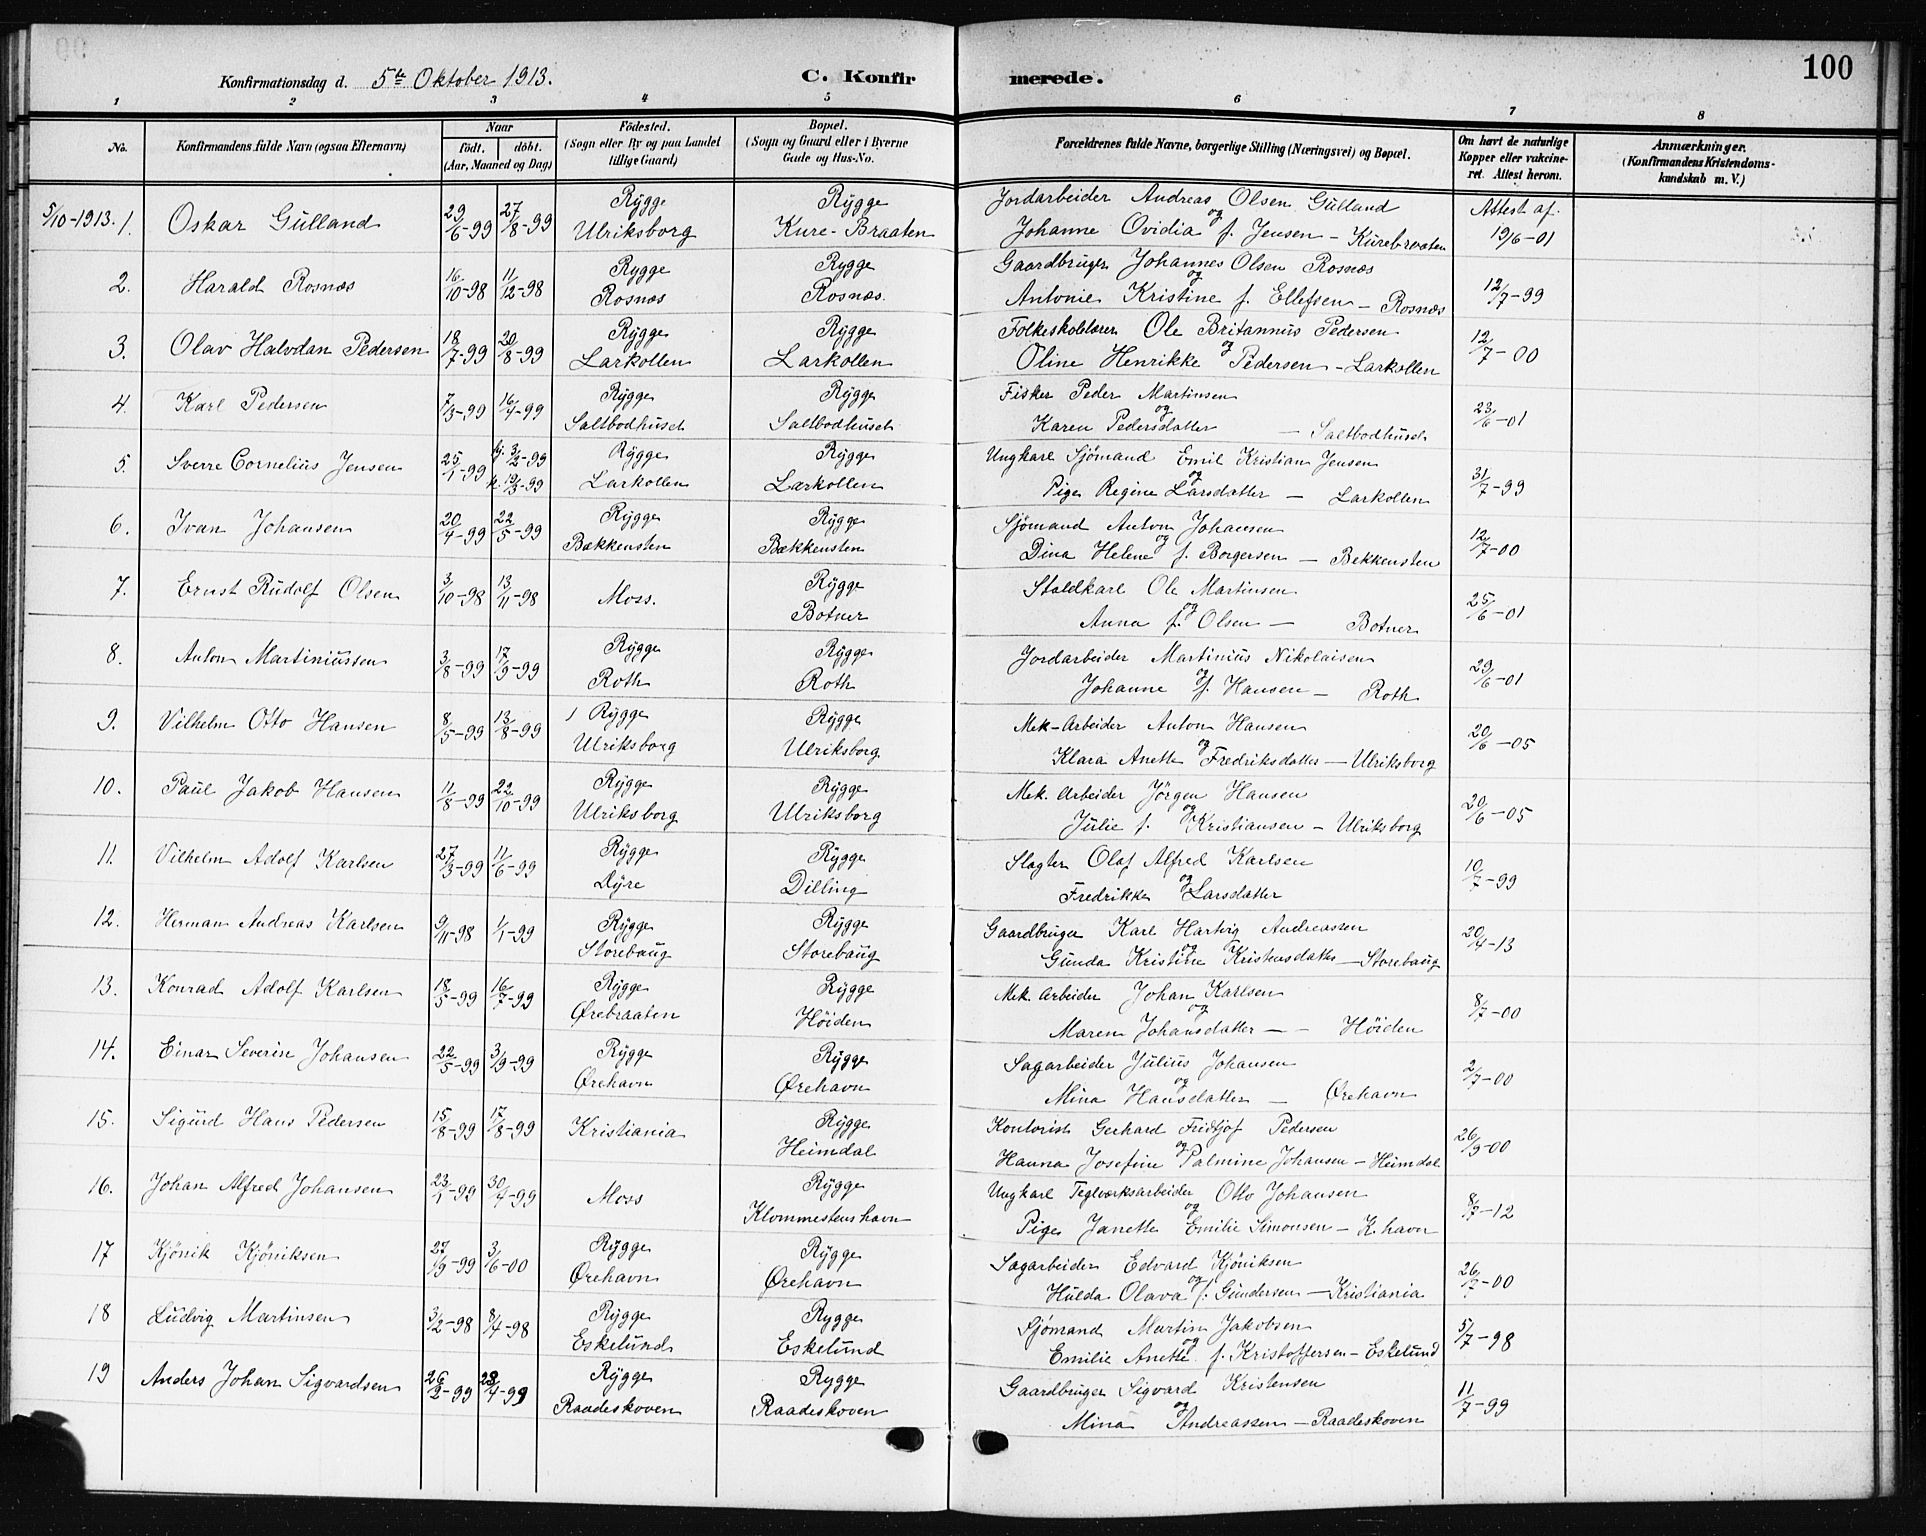 100
Konfirmationsdag d. 5te Oktober 1913. C. Konfirmerede.
1 2 3 4 5 6 7 8
No.
Konfirmandens fulde Navn (ogsaa Efternavn)
Naar
født. døbt.
(Aar, Maaned og Dag)
Fødested.
(Sogn eller By og paa Landet
tillige Gaard)
Bopæl.
(Sogn og Gaard eller i Byerne
Gade og Hus-No.
Forældrenes fulde Navne, borgerlige Stilling (Næringsvei) og Bopæl.
Om havt de naturlige
Kopper eller vakcine-
ret. Attest herom.
Anmærkninger.
(Konfirmandens Kristendoms-
kundskab m. V.)
5/10-1913. 1. Oskar Gulland 29/6-99 27/8-99 Rygge Ulriksborg Rygge Kure-Braaten Jordarbeider Andreas Olsen Gulland og Attest af.
Johanne Ovidia f. Jensen - Kurebraaten 19/6-01
2. Harald Rosnæs 16/10-98 11/12-98 Rygge Rosnæs Rygge Rosnæs. Gaardbruger Johannes Olsen Rosnæs og
Antonie Kristine f. Ellefsen - Rosnæs 12/7-99
3. Olav Halvdan Pedersen 18/7-99 20/8-99 Rygge Larkollen Rygge Larkollen Folkeskolelærer Ole Britannus Pedersen og
Oline Henrikke Pedersen - Larkollen 12/7-00
4. Karl Pedersen 7/3-99 16/4-99 Rygge Saltbodhuset Rygge Saltbodhuset Fisker Peder Martinsen og
Karen Pedersdatter - Saltbodhuset 23/6-01
5. Sverre Cornelius Jensen 25/1-99 hj. 3/2-99 k. 19/3-99 Rygge Larkollen Rygge Larkollen Ungkarl Sjømand Emil Kristian Jensen og
Pige Regine Larsdatter - Larkollen 31/7-99
6. Ivan Johansen 20/4-99 22/5-99 Rygge Bækkensten Rygge Bækkensten Sjømand Anton Johansen og
Dina Helene f. Borgersen - Bekkensten 12/7-00
7. Ernst Rudolf Olsen 3/10-98 13/11-98 Moss. Rygge Botner Staldkarl Ole Martinsen og
Anna f. Olsen - Botner 25/6-01
8. Anton Martiniussen 3/8-99 17/9-99 Rygge Roth Rygge Roth Jordarbeider Martinius Nikolaisen og
Johanne f. Hansen - Roth 29/6-01
9. Vilhelm Otto Hansen 8/5-99 13/8-99 Rygge Ulriksborg Rygge Ulriksborg Mek-Arbeider Anton Hansen og
Klara Anette Fredriksdatter - Ulriksborg 20/6-05
10. Paul Jakob Hansen 11/8-99 22/10-99 Rygge Ulriksborg Rygge Ulriksborg Mek. Arbeider Jørgen Hansen og
Julie f. Kristiansen - Ulriksborg 20/6-05
11. Vilhelm Adolf Karlsen 27/3-99 11/6-99 Rygge Dyre Rygge Dilling Slagter Olaf Alfred Karlsen og
Fredrikke Larsdatter 10/7-99
12. Herman Andreas Karlsen 9/11-98 1/1-99 Rygge Storebaug Rygge Storebaug Gaardbruger Karl Hartvig Andreassen og
Gunda Kristine Kristensdatter - Storebaug 20/4-13
13. Konrad Adolf Karlsen 18/5-99 16/7-99 Rygge Ørebraaten Rygge Høiden Mek. Arbeider Johan Karlsen og
Maren Johansdatter - - Høiden 8/7-00
14. Einar Severin Johansen 22/5-99 3/9-99 Rygge Ørehavn Rygge Ørehavn Sagarbeider Julius Johansen og
Mina Hansdatter - Ørehavn 2/7-00
15. Sigurd Hans Pedersen 15/8-99 17/8-99 Kristiania Rygge Heimdal Kontorist Gerhard Fridtjof Pedersen og
Hanna Josefine Palmine Johansen - Heimdal 26/9-00
16. Johan Alfred Johansen 23/1-99 30/4-99 Moss Rygge Klommestenshavn Ungkarl Teglværksarbeider Otto Johansen og
Pige Janette Emilie Simonsen - K. havn 8/7-12
17 Kjønik Kjøniksen 27/9-99 3/6-00 Rygge Ørehavn Rygge Ørehavn Sagarbeider Edvard Kjøniksen og
Hulda Olava f. Gundersen - Kristiania 26/7-00
18 Ludvig Martinsen 3/2-98 8/4-98 Rygge Eskelund Rygge Eskelund Sjømand Martin Jakobsen og
Emilie Anette f. Kristoffersen - Eskelund 5/7-98
19 Anders Johan Sigvardsen 26/2-99 23/4-99 Rygge Raadeskoven Rygge Raadeskoven Gaardbruger Sigvard Kristensen og
Mina Andreassen - Raadeskoven 11/7-99